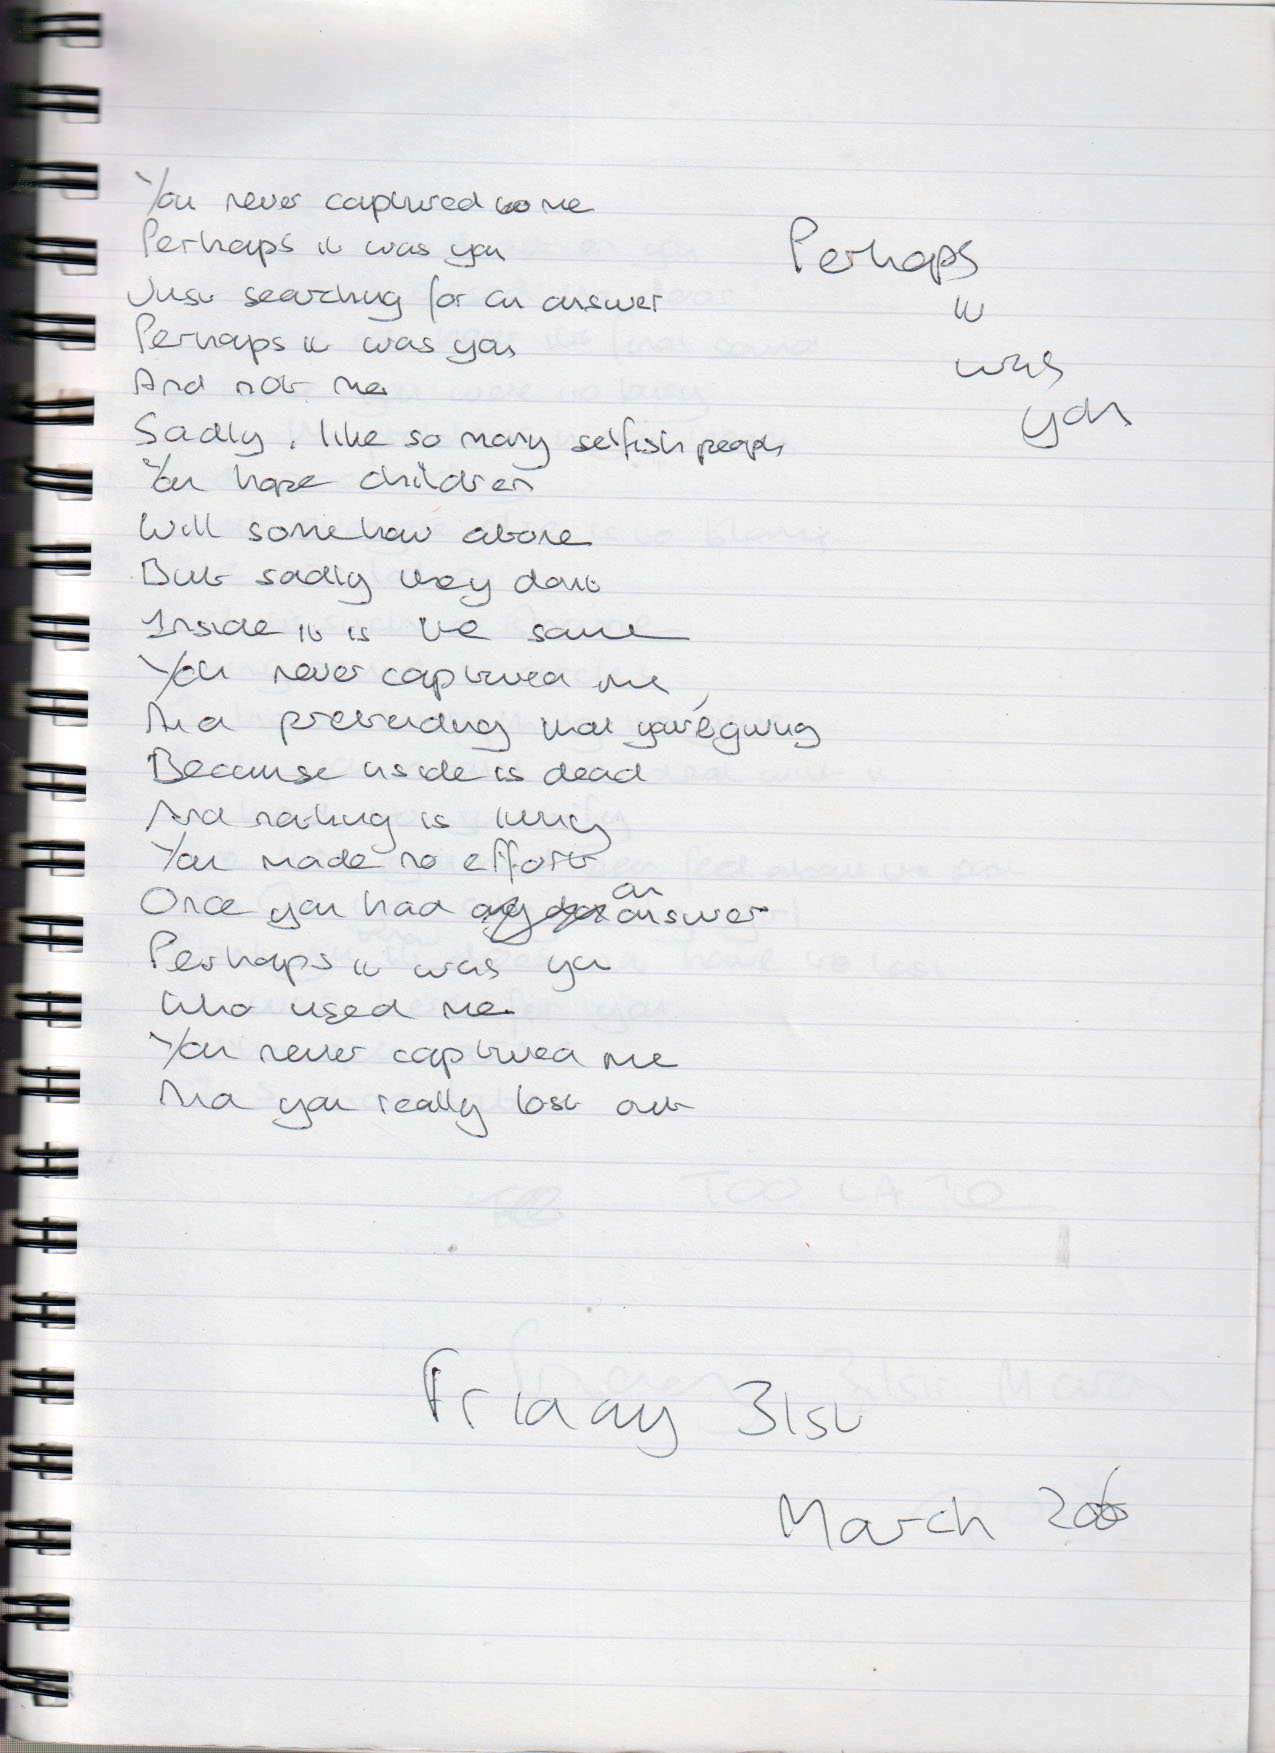 You never captured me
Perhaps it was you
Just searching for an answer
Perhaps it was you
And not me
Sadly, like so many selfish people
You hope children
Will somehow atone
But sadly they dont
Inside it is the same
You never captured me
And pretending that you're giving
Because inside is dead
And nothing is living
You made no effort
Once you had an answer
Perhaps it was you
Who used me.
You never captured me
And you really lost out
Perhaps
it
was
you
Friday 31st
March 2006